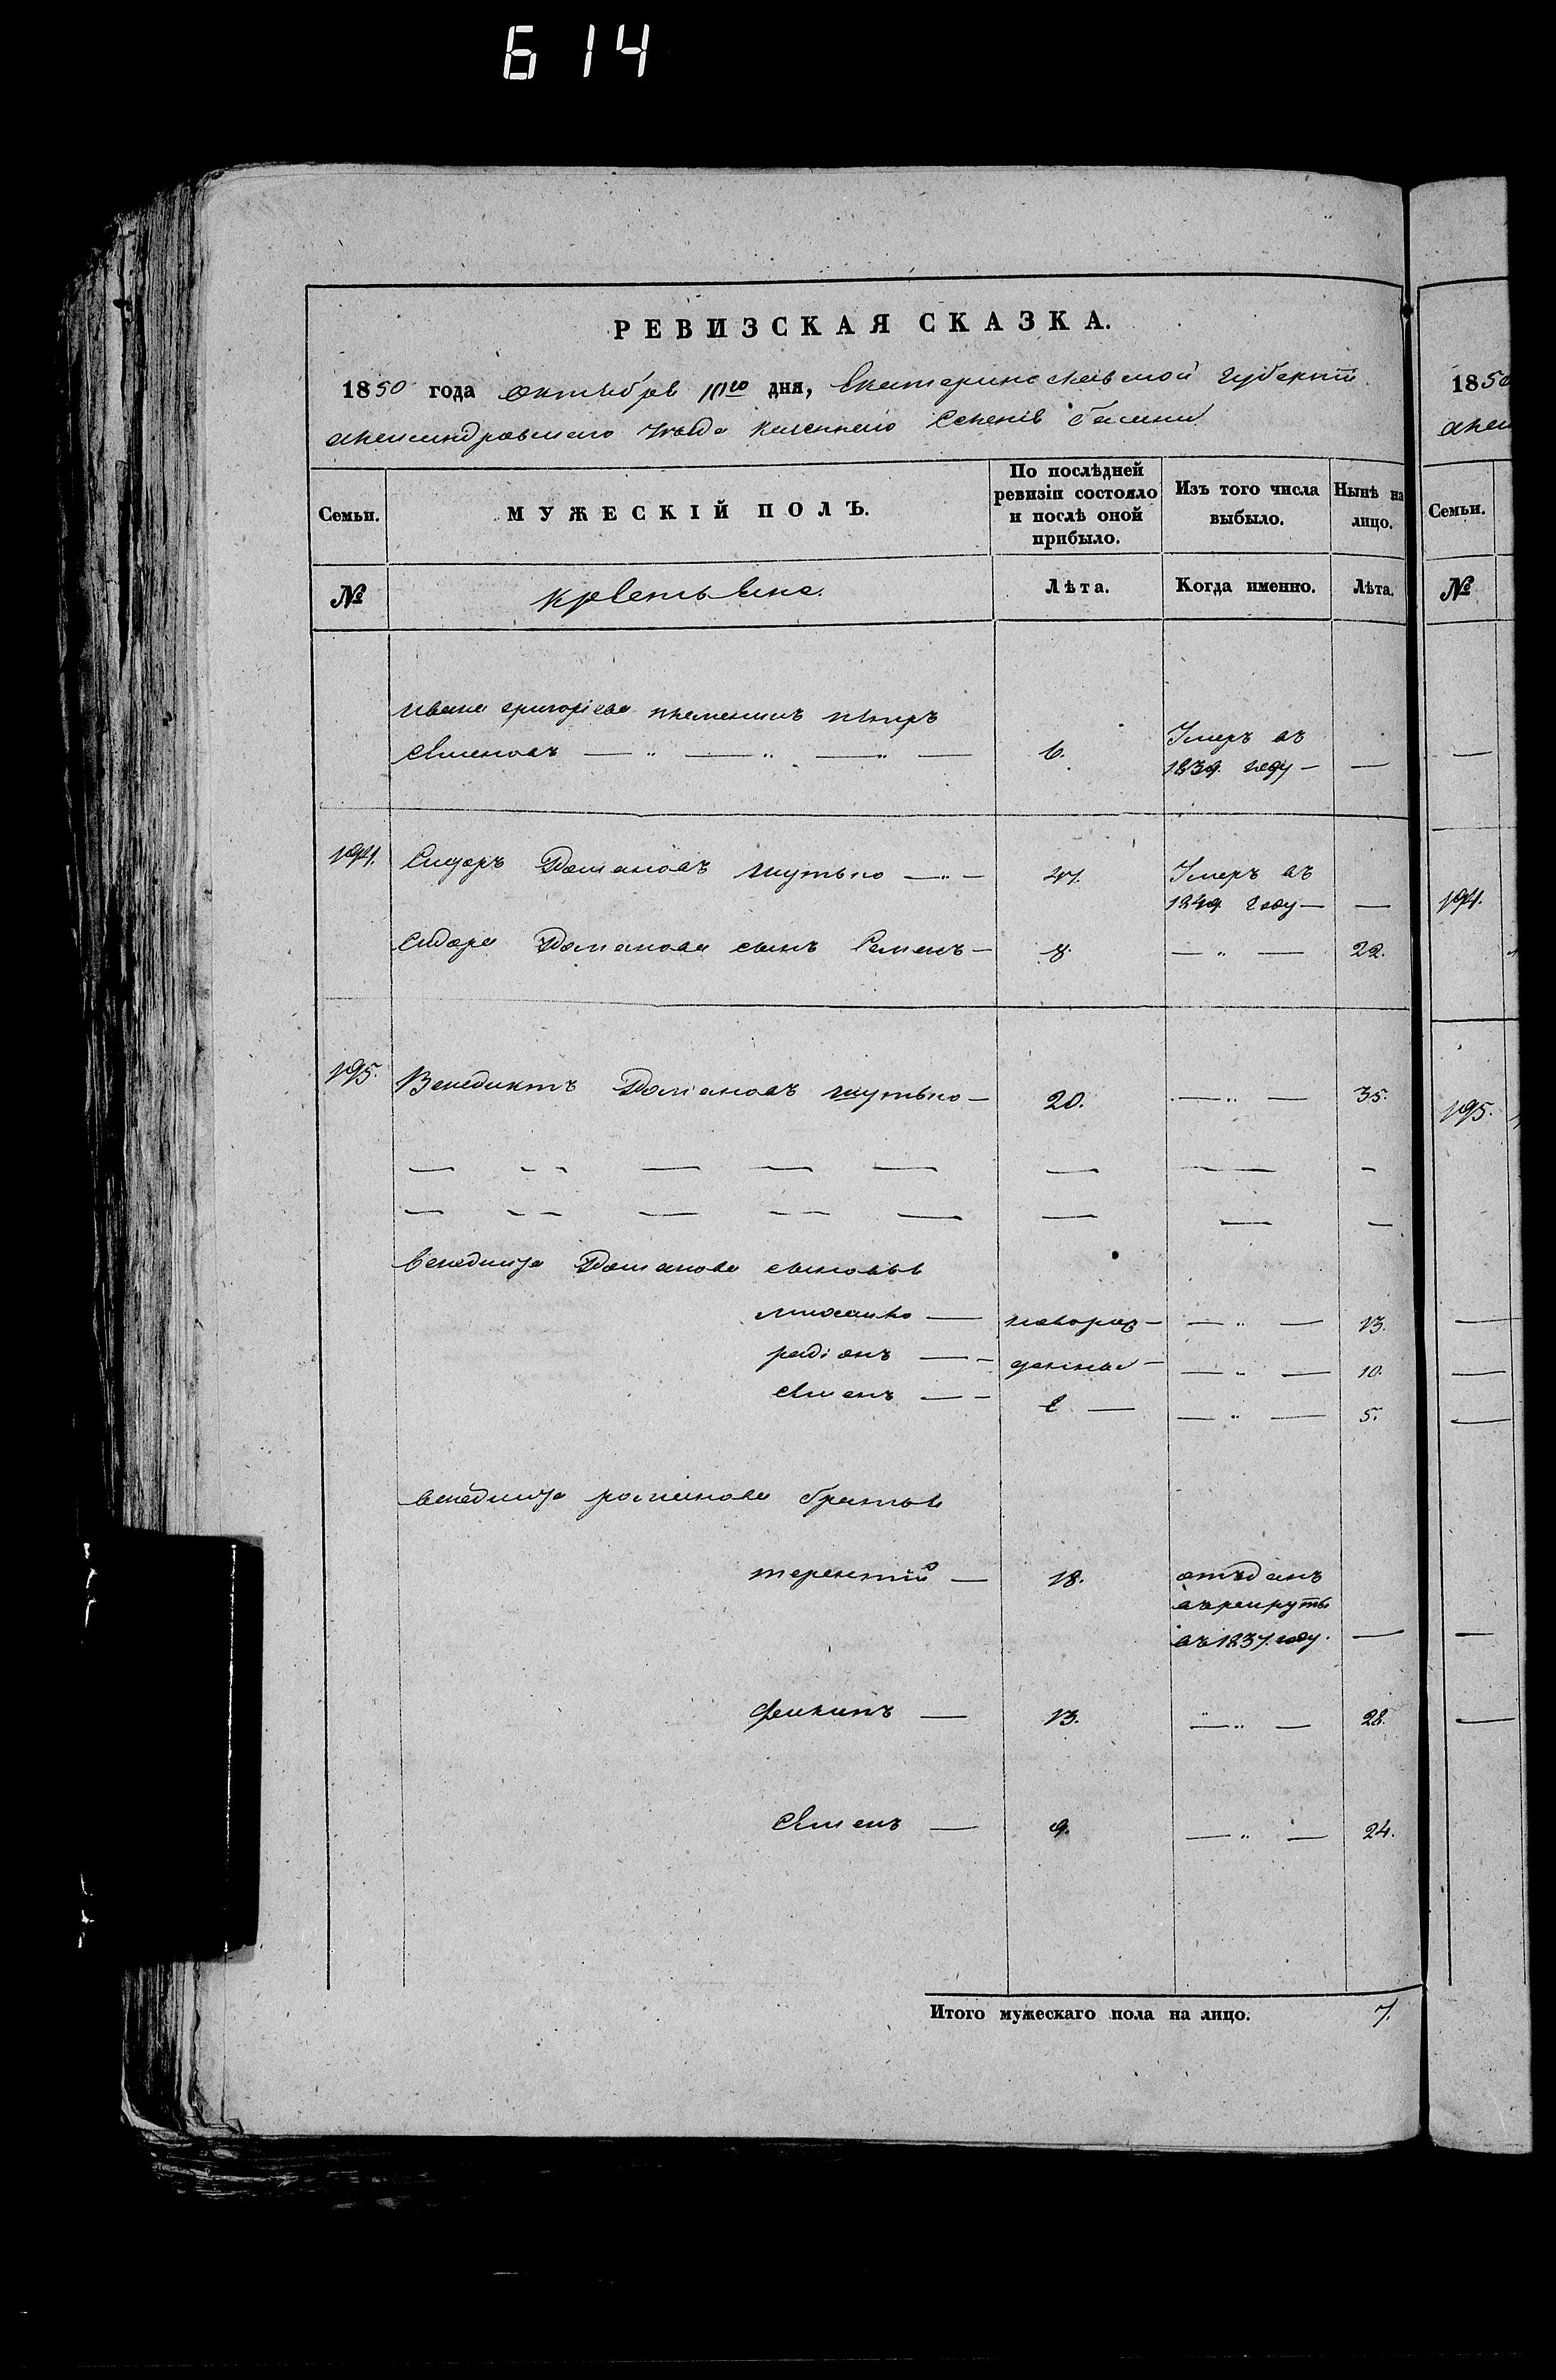 614
РЕВИЗСКАЯ СКАЗКА.
1850 года октября дня, Екатеринославской губернии
александровского уезда казенного Селения
Семьи.
МУЖЕСКІЙ ПОЛЪ.
По послѣдней ревизіи состояло и послѣ оной прибыло.
Изъ того числа выбыло.
Нынѣ на лицо.
№
Лѣта.
Когда именно.
Лѣта.
ивана григоріева племенникъ
Семеновъ — „ — „ — „ — 6. Умеръ въ
1839. году — —
194. Сидоръ Романовъ шутько — „ — Умеръ въ
1849 году — —
Сидора Романова сынъ Семенъ — 8. — „ — 22.
195. Венедиктъ Романовъ шутько — 20. — „ — 35.
Венедикта Романова сыновья
михайло — новорож — „ — 13.
радіонъ — денные — „ — 10.
Семенъ — — „ — 5.
венедикта романова братья
терентій — 18. отъданъ
въ рекруты
въ 1837. году. —
филипъ — 13. — „ — 28.
Семенъ — 9. — „ — 24.
Итого мужескаго пола на лицо. 7.
1850
Семьи.
№
194.
195.